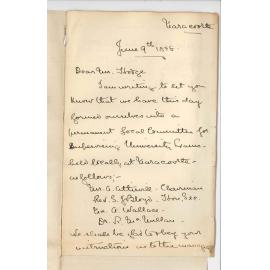 Naracoorte
June 9th 1898.
Dear Mr. Hodge
I am writing to let you
know that we have this day
formed ourselves into a
permanent Local Committee for
supervising University Exams
held locally at Naracoorte
as follows:-
Mr. A. Attiwill - Chairman
Rev. S. J. Lloyd - Hon. Sec.
Geo. A. Wallace -
Dr. D. McMillan -
We shall be glad to obey your
instructions as to the